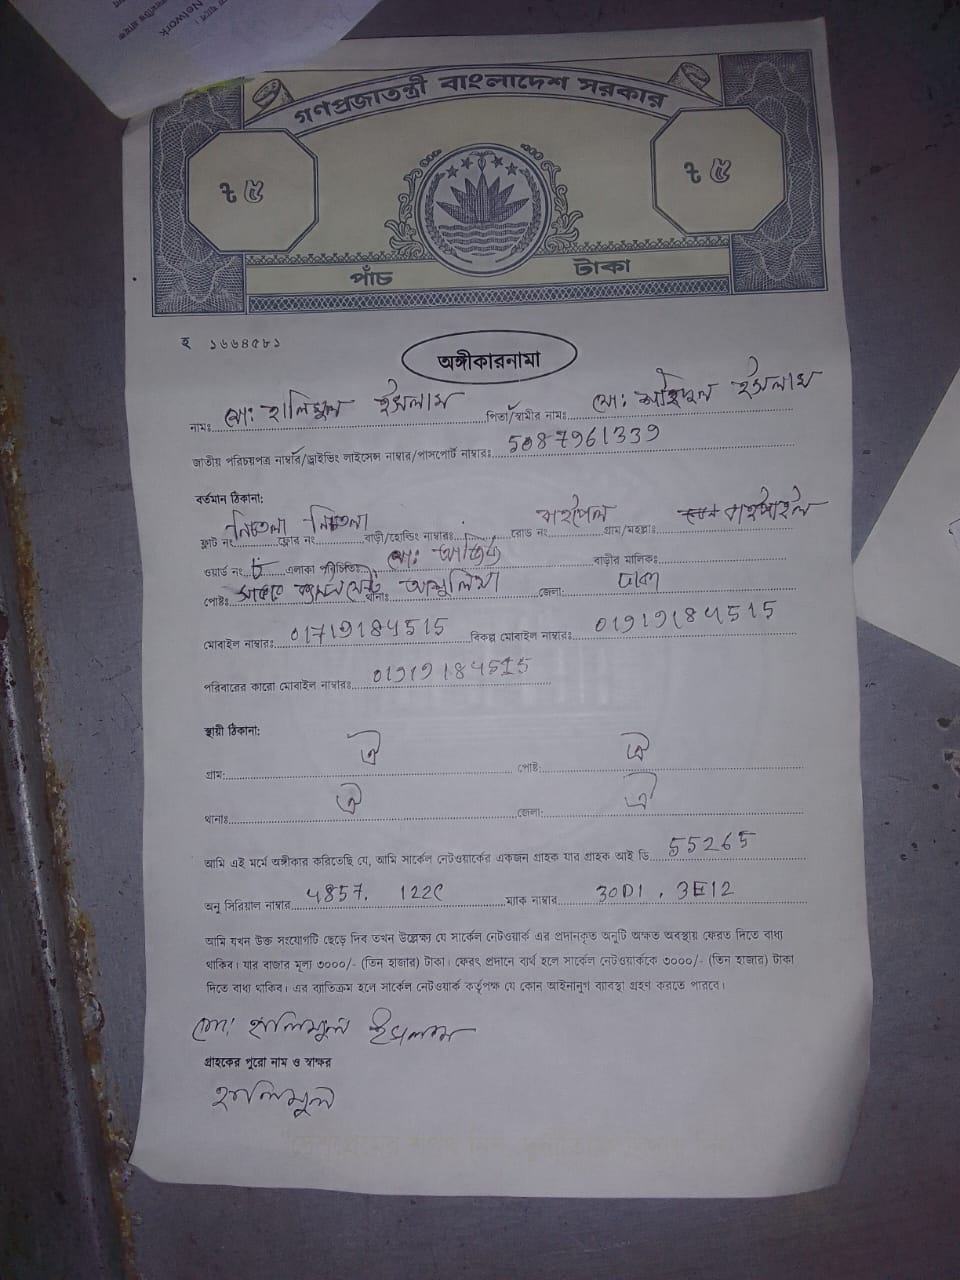 Network
গণপ্রজাতন্ত্রী বাংলাদেশ সরকার
৳ ৫ ৳ ৫
পাঁচ টাকা
হ ১৬৬৪৫৮১
অঙ্গীকারনামা
নামঃ মো: হালিমুল ইসলাম পিতা/স্বামীর নামঃ মো: ইসলাম
জাতীয় পরিচয়পত্র নাম্বার/ড্রাইভিং লাইসেন্স নাম্বার/পাসপোর্ট নাম্বারঃ 5087961339
বর্তমান ঠিকানা:
ফ্লাট নং নিচতলা ফ্লোর নং নিচতলা বাড়ী/হোল্ডিং নাম্বারঃ রোড নং গ্রাম/মহল্লাঃ বাইপাইল
ওয়ার্ড নং এলাকা পরিচিতিঃ মো: বাড়ীর মালিক:
পোষ্টঃ থানাঃ আশুলিয়া জেলা: ঢাকা
মোবাইল নাম্বারঃ 01719184515 বিকল্প মোবাইল নাম্বারঃ 01919184515
পরিবারের কারো মোবাইল নাম্বারঃ 01919184515
স্থায়ী ঠিকানা:
গ্রাম: ঐ পোষ্ট: ঐ
থানাঃ ঐ জেলা: ঐ
আমি এই মর্মে অঙ্গীকার করিতেছি যে, আমি সার্কেল নেটওয়ার্কের একজন গ্রাহক যার গ্রাহক আই ডি 55265
অনু সিরিয়াল নাম্বার 4857. 122C ম্যাক নাম্বার 30D1. 3E12
আমি যখন উক্ত সংযোগটি ছেড়ে দিব তখন উল্লেক্ষ্য যে সার্কেল নেটওয়ার্ক এর প্রদানকৃত অনুটি অক্ষত অবস্থায় ফেরত দিতে বাধ্য
থাকিব। যার বাজার মূল্য ৩০০০/- (তিন হাজার) টাকা। ফেরৎ প্রদানে ব্যর্থ হলে সার্কেল নেটওয়ার্ককে ৩০০০/- (তিন হাজার) টাকা
দিতে বাধ্য থাকিব। এর ব্যতিক্রম হলে সার্কেল নেটওয়ার্ক কর্তৃপক্ষ যে কোন আইনানুগ ব্যাবস্থা গ্রহণ করতে পারবে।
মো: হালিমুল ইসলাম
গ্রাহকের পুরো নাম ও স্বাক্ষর
হালিমুল